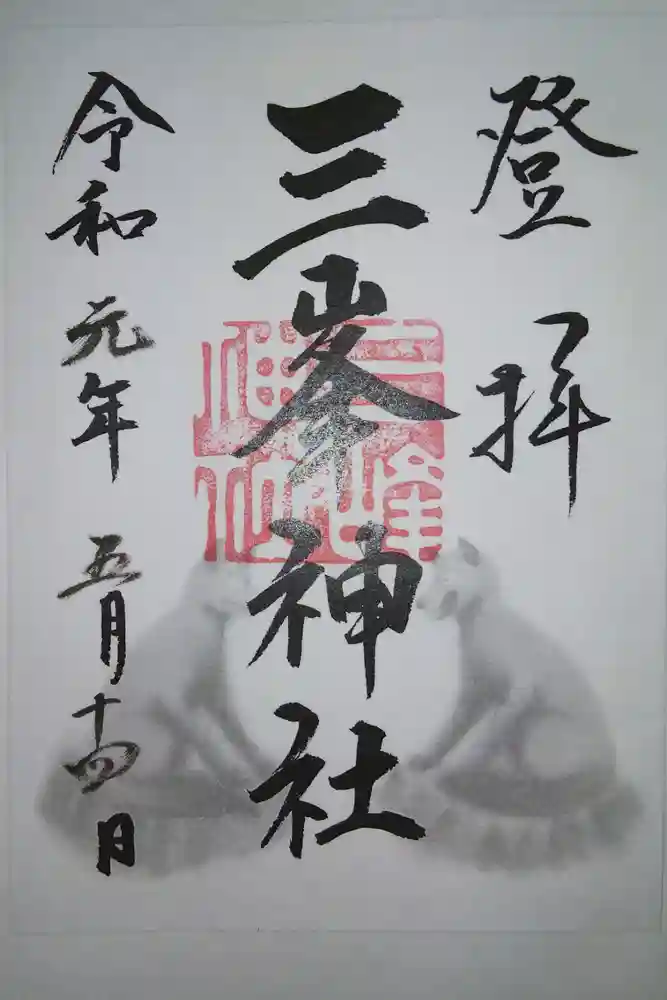 登拝
三峯神社
令和元年 五月十四日